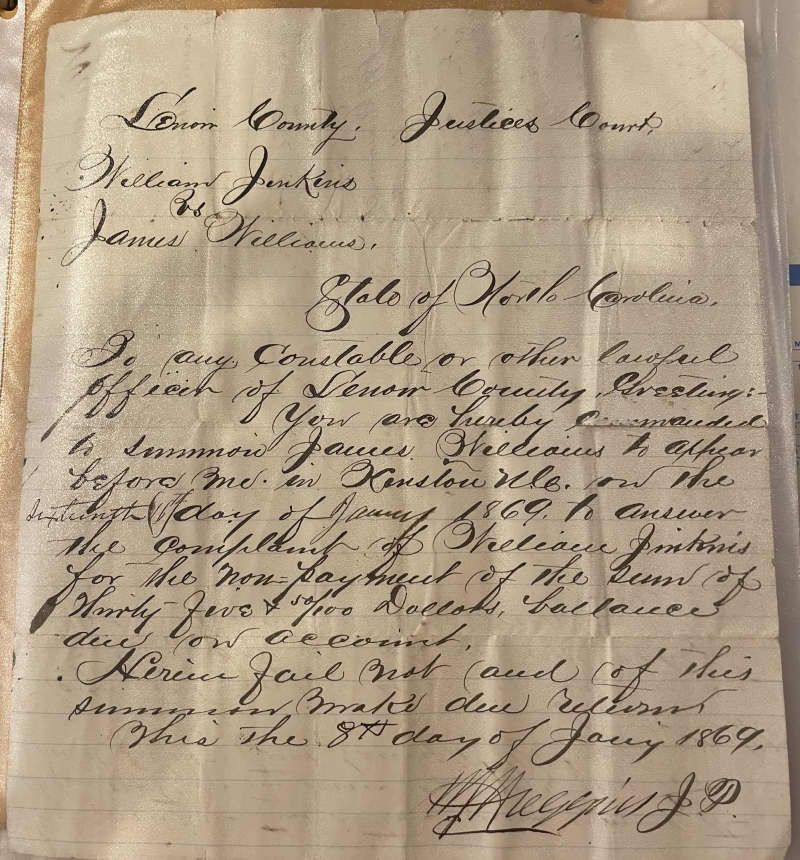 Lenoir County. Justices Court.
William Jinkins
vs
James Williams.
State of North Carolina.
To any Constable or other lawful
officer of Lenoir County, Greeting:-
You are hereby commanded
to summon James Williams to appear
before me. in Kinston N.C. on the
sixteenth (16th) day of January 1869. to answer
the complaint of William Jinkins
for the non-payment of the sum of
thirty five & 50/100 Dollars, ballance
due on account.
Herein fail not and of this
summon make due return
this the 8th day of Jany 1869.
J.P.